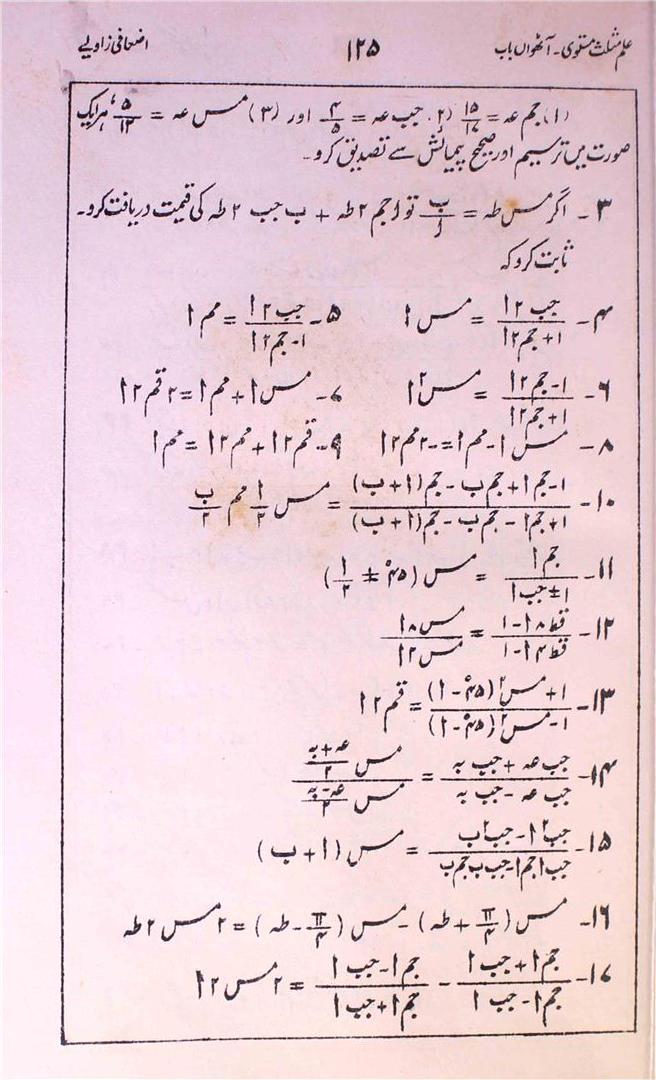 علم مثلث مستوی۔ آٹھواں باب ۱۲۵ اضعافی زاویے
(۱) جم عہ = ۱۵/۱۷ (۲) جب عہ = ۴/۵ اور (۳) مس عہ = ۵/۱۲، ہر ایک
صورت میں ترسیم اور صحیح پیمائش سے تصدیق کرو۔
۳۔ اگر مس طہ = ب/ا تو ا جم ۲ طہ + ب جب ۲ طہ کی قیمت دریافت کرو۔
ثابت کرو کہ
۴۔ جب ۲ا / (۱ + جم ۲ا) = مس ا ۵۔ جب ۲ا / (۱ - جم ۲ا) = مم ا
۶۔ (۱ - جم ۲ا) / (۱ + جم ۲ا) = مس² ا ۷۔ مس ا + مم ا = ۲ قم ۲ا
۸۔ مس ا - مم ا = -۲ مم ۲ا ۹۔ قم ۲ا + مم ۲ا = مم ا
۱۰۔ (۱ - جم ا + جم ب - جم (ا + ب)) / (۱ + جم ا - جم ب - جم (ا + ب)) = مس ا/۲ مم ب/۲
۱۱۔ جم ا / (۱ ± جب ا) = مس (۴۵° ± ا/۲)
۱۲۔ (قط ۸ا - ۱) / (قط ۴ا - ۱) = مس ۸ا / مس ۲ا
۱۳۔ (۱ + مس² (۴۵° - ا)) / (۱ - مس² (۴۵° - ا)) = قم ۲ا
۱۴۔ (جب عہ + جب بہ) / (جب عہ - جب بہ) = مس (عہ + بہ)/۲ / مس (عہ - بہ)/۲
۱۵۔ (جب² ا - جب² ب) / (جب ا جم ا - جب ب جم ب) = مس (ا + ب)
۱۶۔ مس (π/۴ + طہ) - مس (π/۴ - طہ) = ۲ مس ۲ طہ
۱۷۔ (جم ا + جب ا) / (جم ا - جب ا) - (جم ا - جب ا) / (جم ا + جب ا) = ۲ مس ۲ا